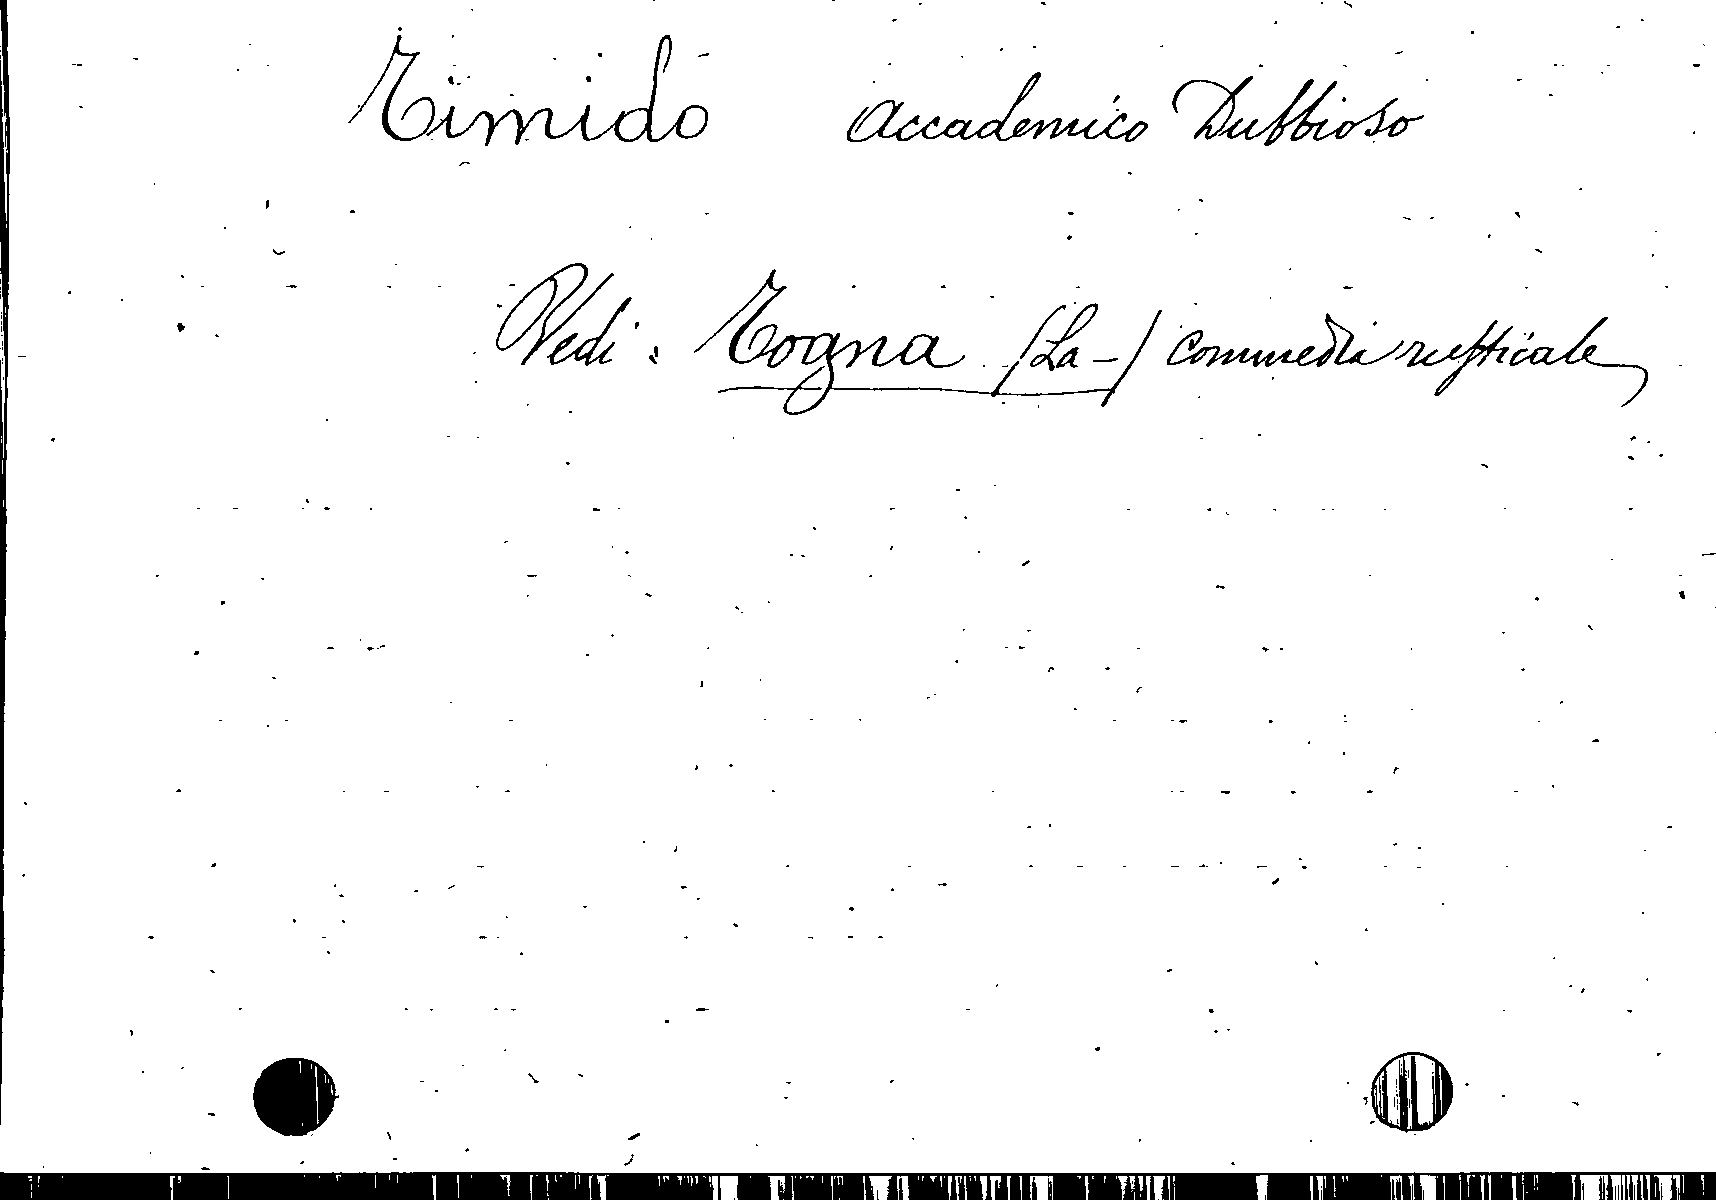 Timido accademico Dubbioso
Vedi: Togna (La-) commedia rusticale